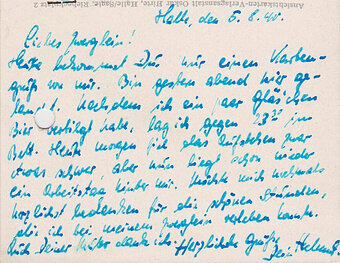 Ansichtskarten-Verlagsanstalt Oskar Hirte, Halle/Saale, Riebeckplatz 2
Halle, den 5. 8. 40.
Liebes Zwerglein!
Heute bekommst Du nur einen Karten-
gruß von mir. Bin gestern abend hier ge-
landet. Nachdem ich ein paar Gläschen
Bier vertilgt habe, lag ich gegen 23 30 im
Bett. Heute morgen fiel das Aufstehen zwar
etwas schwer, aber nun liegt schon wieder
ein Arbeitstag hinter mir. Möchte mich nochmals
herzlichst bedanken für die schönen Stunden,
die ich bei meinem Zwerglein verleben konnte.
Auch Deiner Mutter danke ich. Herzliche Grüße
Dein Helmut.